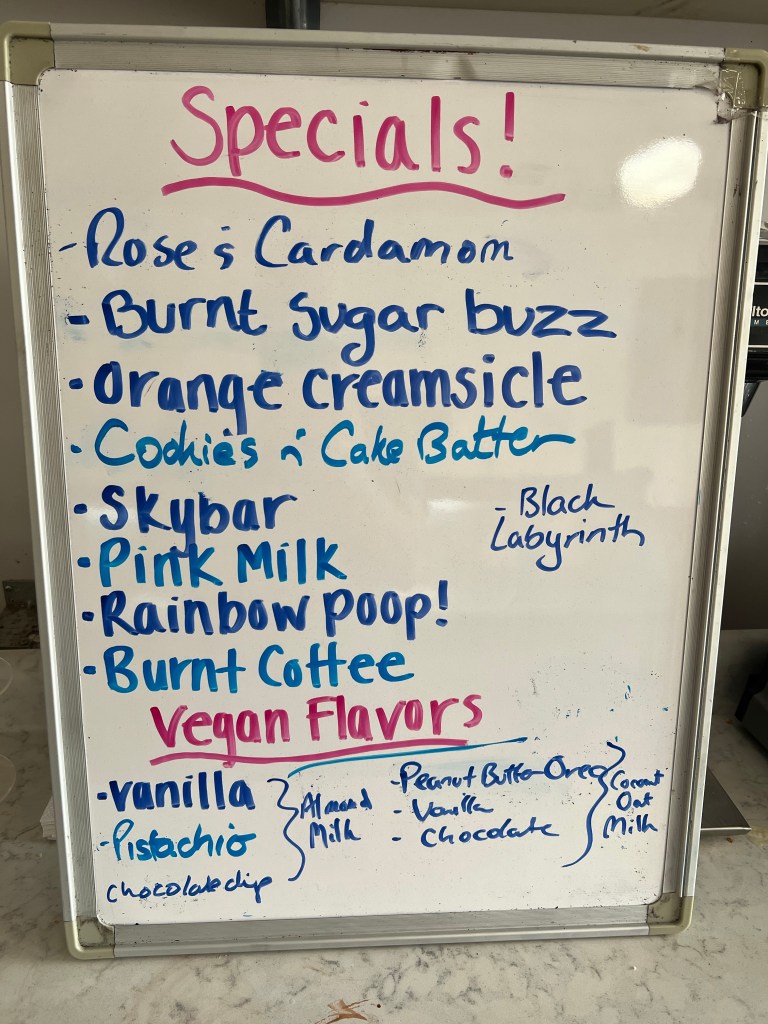 Specials!
- Rose & Cardamom
- Burnt Sugar buzz
- Orange creamsicle
- Cookies n' Cake Batter
- Skybar
- Black
Labyrinth
- Pink Milk
- Rainbow Poop!
- Burnt Coffee
Vegan Flavors
- vanilla
- Pistachio
chocolate chip
Almond
Milk
- Peanut Butter Oreo
- Vanilla
- chocolate
Coconut
Oat
Milk